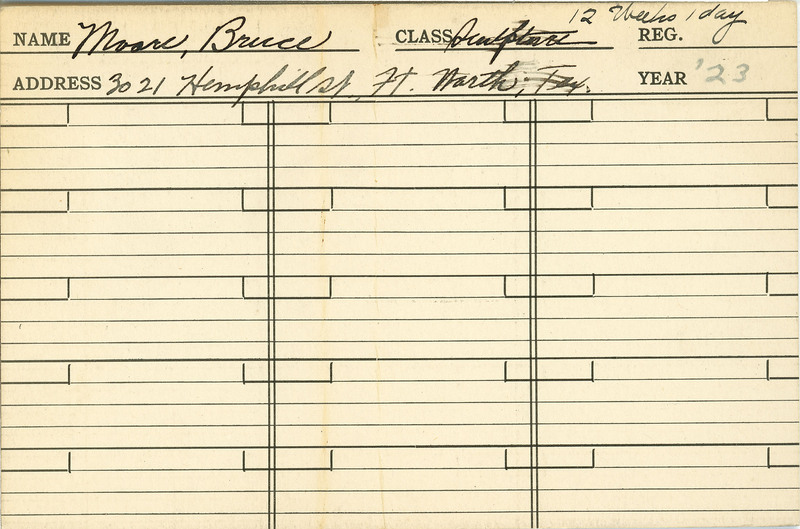 12 Weeks 1 day
NAME Moore, Bruce CLASS Sculpture REG.
ADDRESS 3021 Hemphill St., Ft. Worth, Tex. YEAR '23